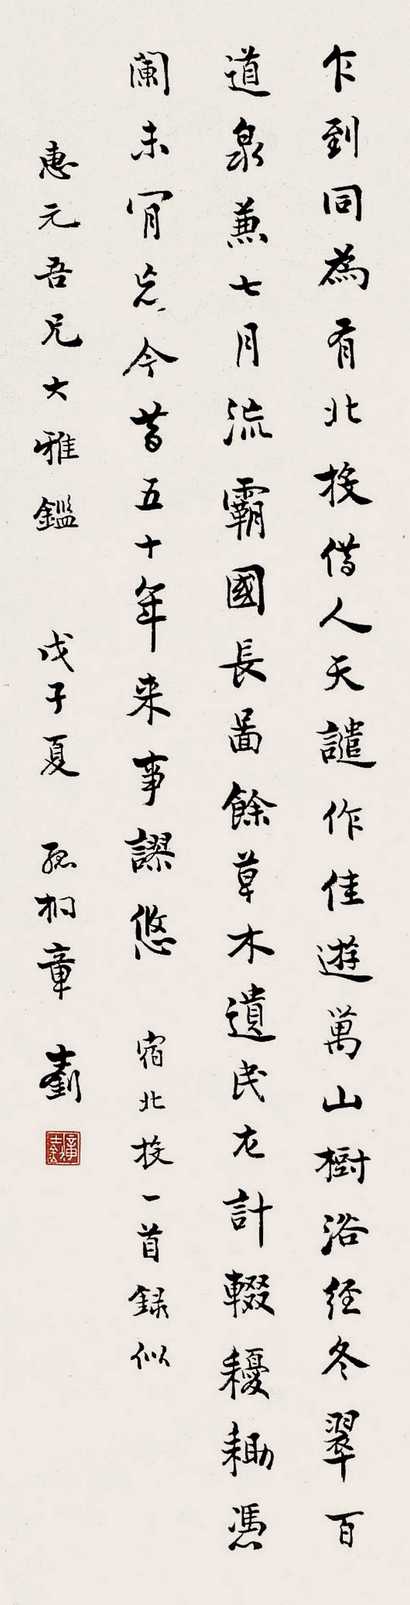 乍到同為有北投借人天譴作佳遊萬山樹浴經冬翠百
道泉兼七月流霸國長啚餘草木遺民左計輟耰耡憑
闌未肎忘今昔五十年来事謬悠 宿北投一首錄似
惠元吾兄大雅鑑 戊子夏 孤桐章士釗
章士釗